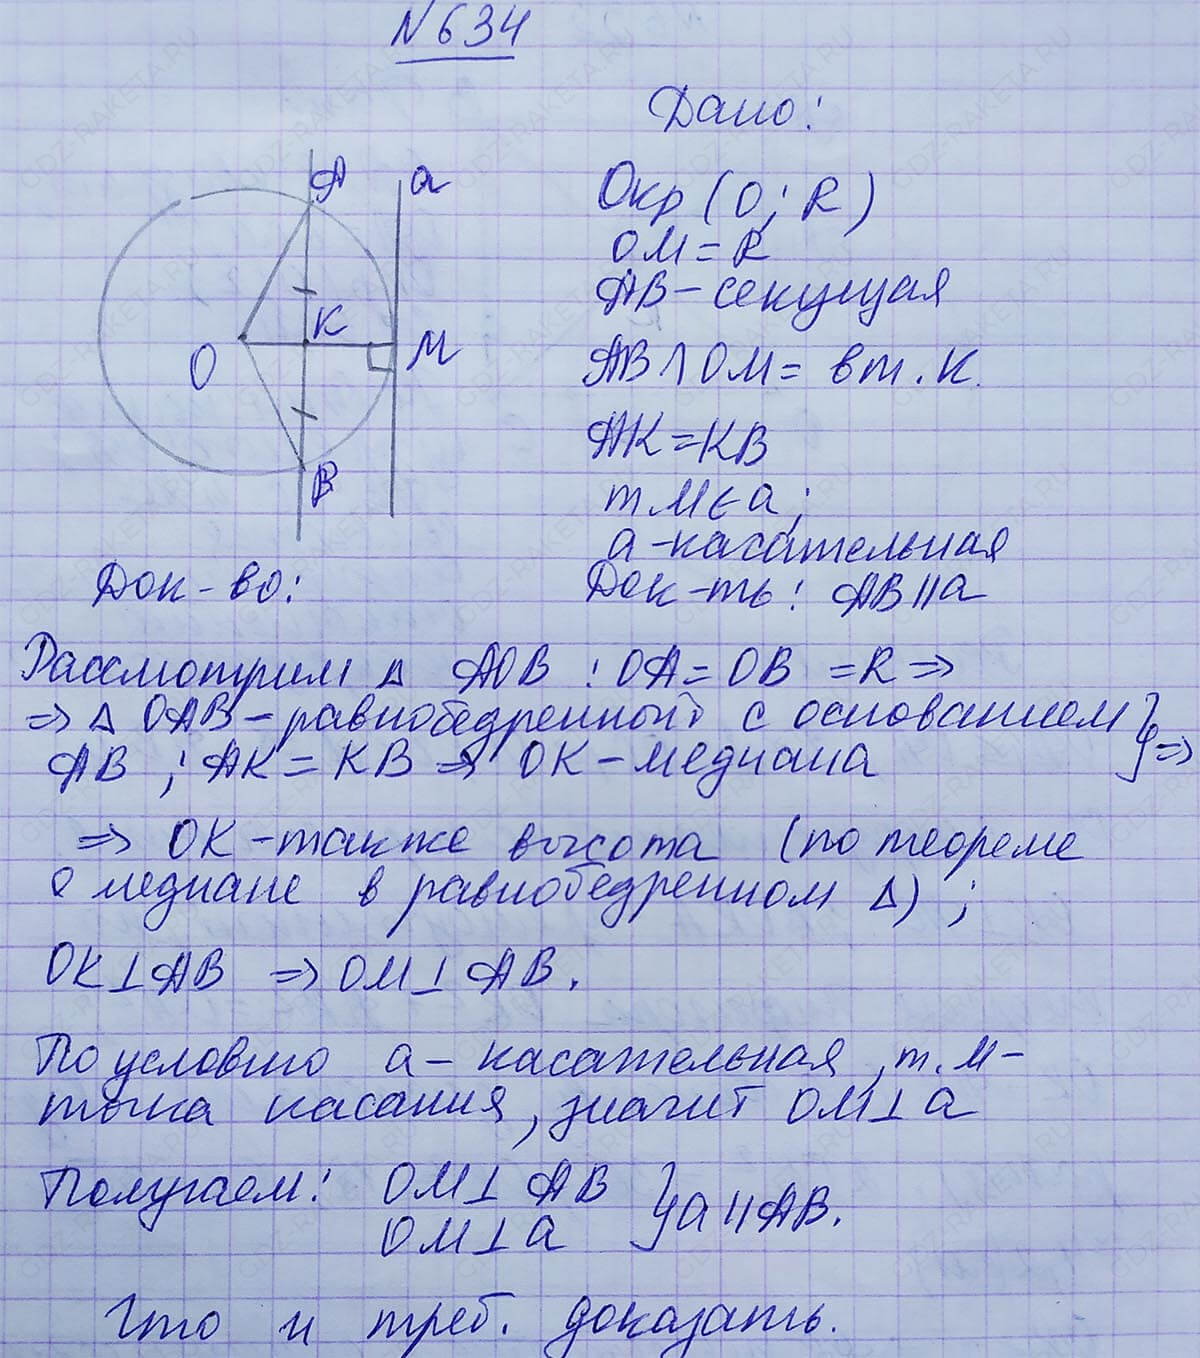 N 634
Дано:
A
a
K
O
M
B
Окр (O; R)
OM = R
AB - секущая
AB ∩ OM = в т. K.
AK = KB
т. M ∈ a;
a - касательная
Док-ть: AB || a
Док-во:
Рассмотрим Δ AOB : OA = OB = R =>
=> Δ OAB - равнобедренный с основанием
AB ; AK = KB => OK - медиана } =>
=> OK - также высота (по теореме
о медиане в равнобедренном Δ) ;
OK ⊥ AB => OM ⊥ AB.
По условию a - касательная, т. M -
точка касания, значит OM ⊥ a
Получаем: OM ⊥ AB
OM ⊥ a } a || AB.
Что и треб. доказать.